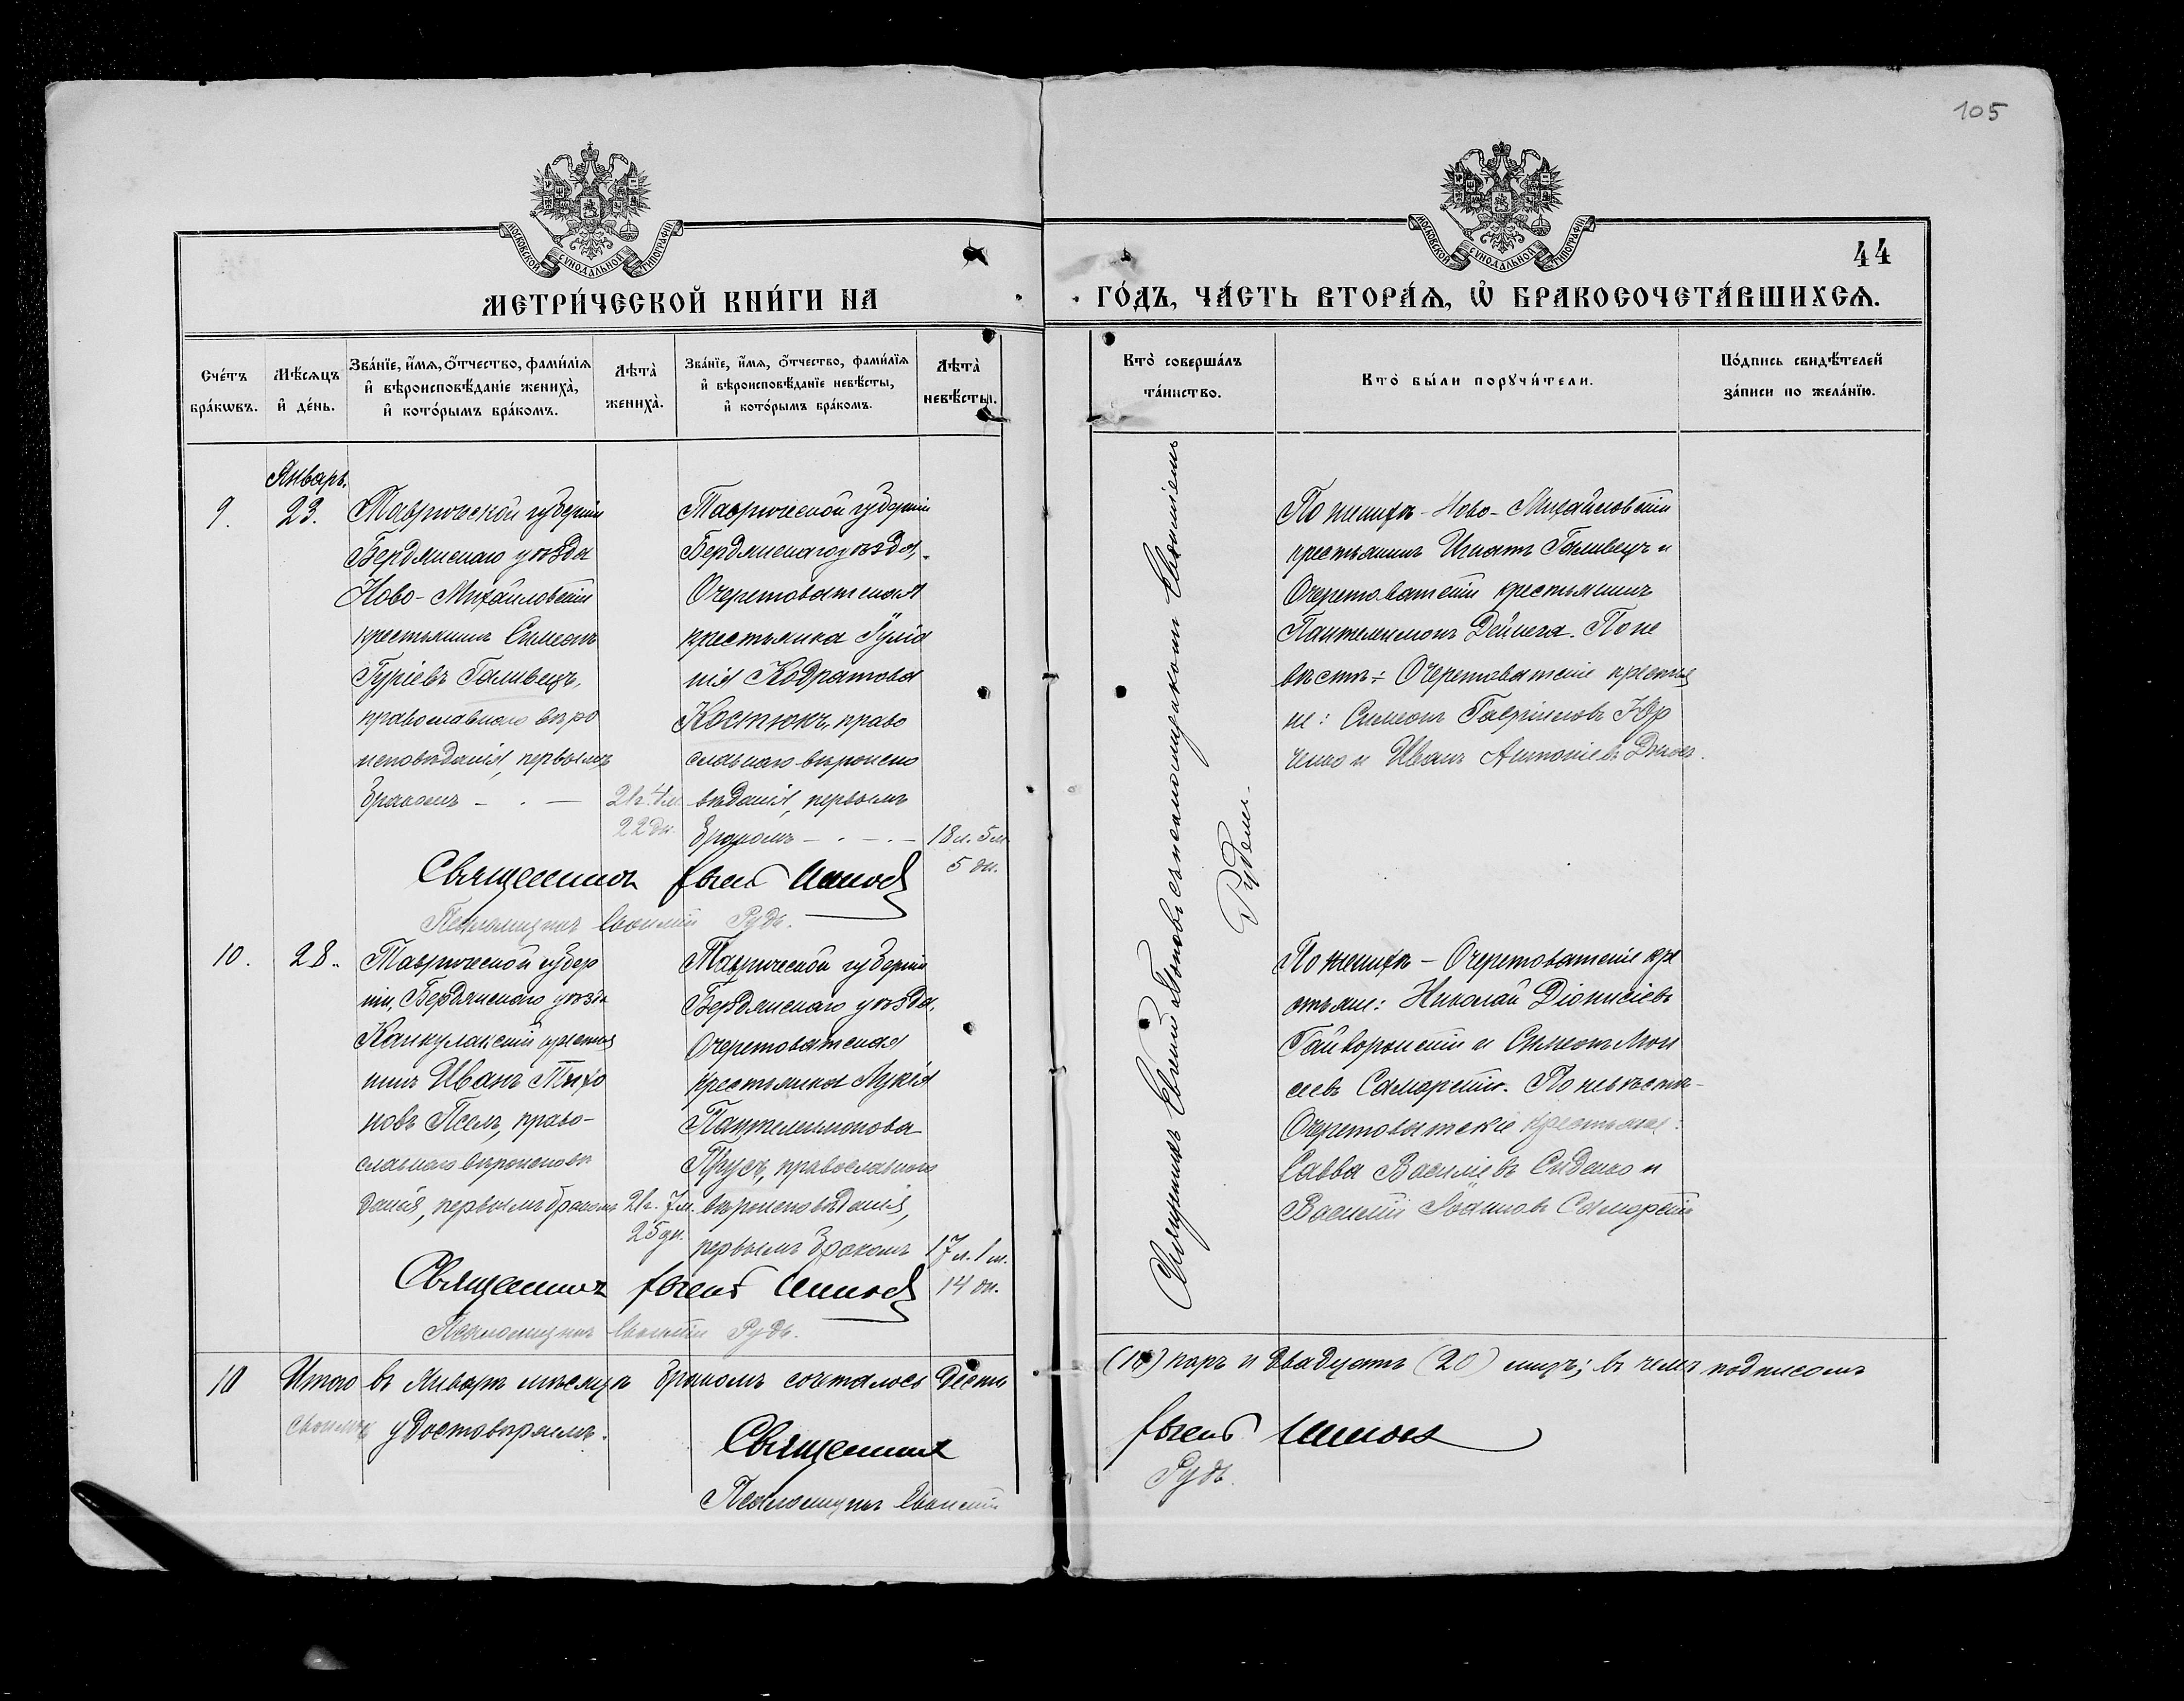 105
МОСКОВСКОЙ СѴНОДАЛЬНОЙ ТИПОГРАФІИ
МОСКОВСКОЙ СѴНОДАЛЬНОЙ ТИПОГРАФІИ
44
МЕТРИ́ЧЕСКОЙ КНИ́ГИ НА
ГО́ДЪ, ЧА́СТЬ ВТОРА́Ѧ, Ѽ БРАКОСОЧЕТА́ВШИХСѦ.
Сче́тъ
бра́кѡвъ.
Мѣ́сяцъ
и҆ де́нь.
Зва́нїе, и҆́мѧ, ѻ҆́тчество, фами́лїѧ
и҆ вѣроисповѣ́данїе жениха̀,
и҆ кото́рымъ бра́комъ.
Лѣта̀
жениха̀.
Зва́нїе, и҆́мѧ, ѻ҆́тчество, фами́лїѧ
и҆ вѣроисповѣ́данїе невѣ́сты,
и҆ кото́рымъ бра́комъ.
Лѣта̀
невѣ́сты.
Кто̀ соверша́лъ
та́инство.
Кто̀ бы́ли порꙋчи́тели.
По́дпись свидѣ́телей
за́писи по жела́нїю.
Январь.
9.
23.
Таврической губерніи
Бердянскаго уѣзда
Ново-Михайловскій
крестьянинъ Симеонъ
Гуріевъ Галивецъ,
православнаго вѣро
исповѣданія, первымъ
бракомъ
21г. 4м.
22 дн.
Таврической губерніи
Бердянскаго уѣзда,
Очеретоватская
крестьянка Іулiа
нія Кодратова
Костюкъ, право
славнаго вѣроиспо
вѣданія, первымъ
бракомъ
18л. 5м.
5 дн.
Священникъ
Псаломщикъ Евсикій Рудь.
По женихѣ - Ново-Михайловскій
крестьянинъ Игнатъ Галивецъ и
Очеретоватскій крестьянинъ
Пантелеимонъ Дейнега. По не
вѣстѣ: Очеретоватскіе крестья
не: Симеонъ Гавріиловъ Юр
ченко и Иванъ Антоніевъ
Священникъ
псаломщикомъ
Рудемъ.
10.
28.
Таврической губер
ніи, Бердянскаго уѣзда
крестья
нинъ Иванъ Тихо
новъ право-
славнаго вѣроисповѣ
данія, первымъ бракомъ
21г. 7м.
25 дн.
Таврической губерніи
Бердянскаго уѣзда,
Очеретоватская
крестьянка Лукія
Пантелеимонова
Прусъ, православнаго
вѣроисповѣданія,
первымъ бракомъ
17л. 1м.
14 дн.
Священникъ
Псаломщикъ Рудь.
По женихѣ - Очеретоватскіе кре
стьяне: Николай Діонисіевъ
Гайворонскій и Симеонъ Мои
сеевъ Саморскій. По невѣстѣ-
Очеретоватскіе крестьяне:
Савва Василіевъ и
Василій Саморскій
10
Итого въ Январѣ мѣсяцѣ бракомъ сочеталось десять
(10) паръ и двадцать (20) лицъ; въ чемъ подписомъ
своимъ удостовѣряемъ.
Священникъ
Псаломщикъ
Рудь.